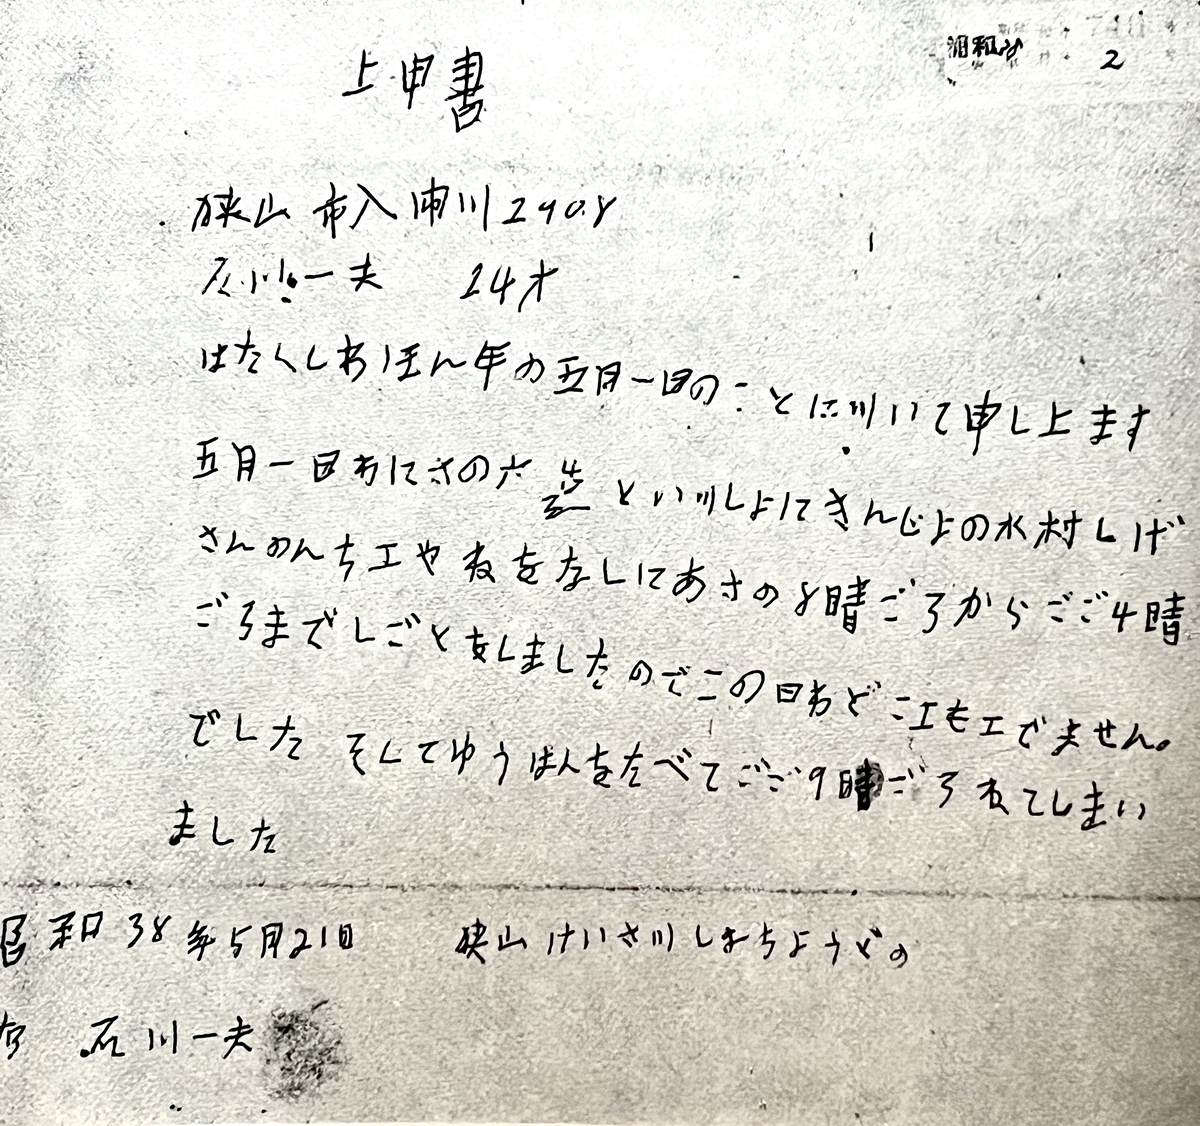 2
上申書
狭山市入間川2908
石川一夫 24才
はたくしわほん年の五月一日のことに川いて申し上ます
五月一日わにさの六造といッしよにきんじよの水村しげ
さんのんち工やねをなしにあさの8時ごろからごご4時
ごろまでしごとをしましたのでこの日わどこエもエでません。
でした そしてゆうはんをたべてごご9時ごろねてしまい
ました
昭和38年5月21日 狭山けいさ川しよちょうどの
石川一夫